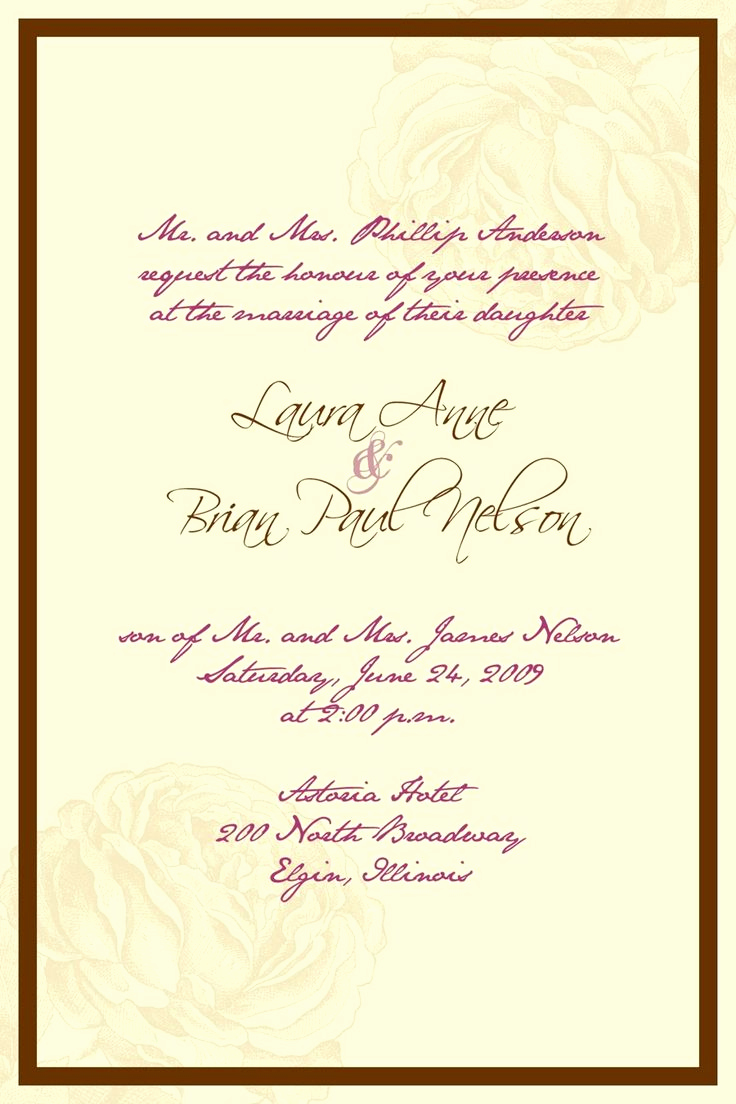 Mr. and Mrs. Phillip Anderson
request the honour of your presence
at the marriage of their daughter
Laura Anne
&
Brian Paul Nelson
son of Mr. and Mrs. James Nelson
Saturday, June 24, 2009
at 2:00 p.m.
Astoria Hotel
200 North Broadway
Elgin, Illinois